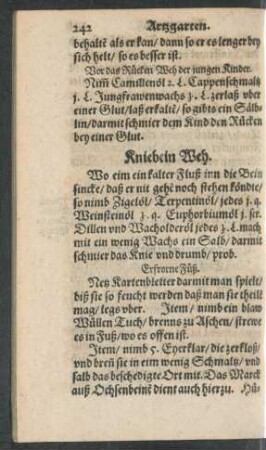 242 Artzgarten.
behaltē als er kan / dann so er es lenger bey
sich helt / so es besser ist.
Vor das Rücken Weh der jungen Kinder.
Nim̄ Camillenöl 2. L. Cappenschmaltz
j. L. Jungfrawenwachs ʒ. L. zerlaß vber
einer Glut / laß erkaltē / so gibts ein Sälb-
lin / darmit schmier dem Kind den Rücken
bey einer Glut.
Kniebein Weh.
Wo eim ein kalter Fluß inn die Bein
sincke / daß er nit gehē noch stehen köndte /
so nimb Zigelöl / Terpentinöl / jedes j. q.
Weinsteinöl ʒ. q. Euphorbiumöl j. scr.
Dillen vnd Wacholderöl jedes ʒ. L. mach
mit ein wenig Wachs ein Salb / darmit
schmier das Knie vnd drumb / prob.
Erfrorne Füß.
Netz Kartenbletter darmit man spielt /
biß sie so feucht werden daß man sie theilē
mag / legs vber. Item / nimb ein blaw
Wüllen Tuch / brenns zu Aschen / strewe
es in Fuß / wo es offen ist.
Item / nimb 5. Eyerklar / die zerkloß /
vnd breñ sie in eim wenig Schmaltz / vnd
salb das beschedigte Ort mit. Das Marck
auß Ochsenbeinē dient auch hierzu. Hü-